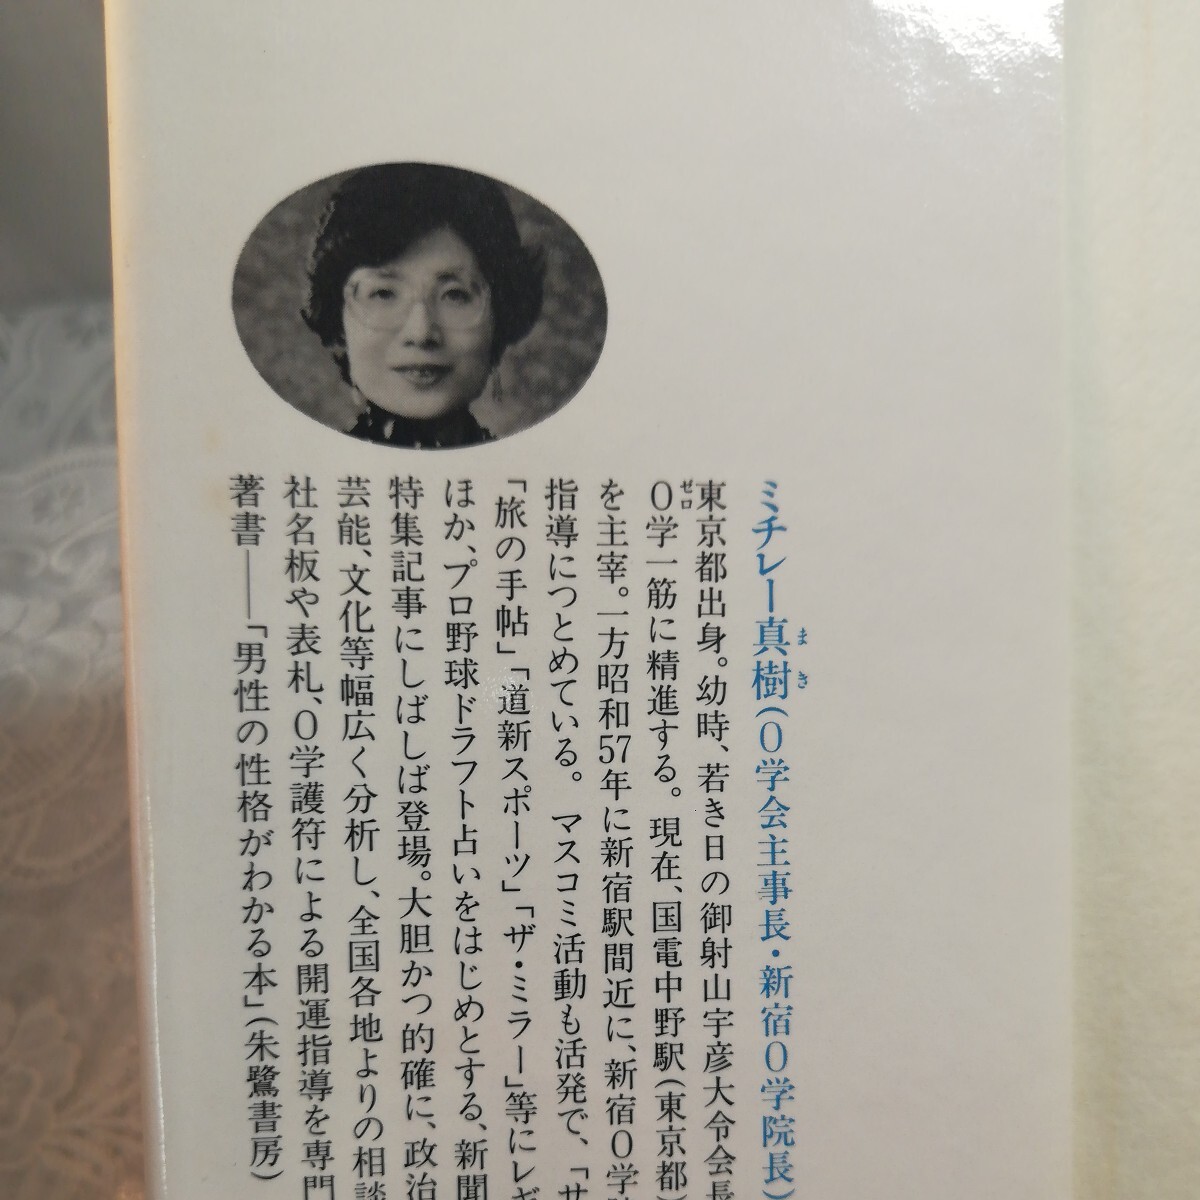 ミチレー真樹(O学会主事長・新宿O学院長)
まき
東京都出身。幼時、若き日の御射山宇彦大令会長
O学一筋に精進する。現在、国電中野駅(東京都)
ゼロ
を主宰。一方昭和57年に新宿駅間近に、新宿O学
指導につとめている。マスコミ活動も活発で、「サ
「旅の手帖」「道新スポーツ」「ザ・ミラー」等にレギ
ほか、プロ野球ドラフト占いをはじめとする、新聞
特集記事にしばしば登場。大胆かつ的確に、政治
芸能、文化等幅広く分析し、全国各地よりの相談
社名板や表札、O学護符による開運指導を専門
著書――「男性の性格がわかる本」(朱鷺書房)